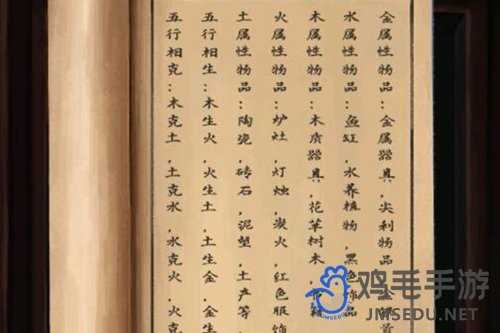 金属性物品:金属器具,尖利物品
水属性物品:鱼缸,水养植物,黑色饰品
木属性物品:木质器具,花草树木,
火属性物品:炉灶,灯烛,炭火,红色服饰
土属性物品:陶瓷,砖石,泥塑,土产等
五行相生:木生火,火生土,土生金,金生
五行相克:木克土,土克水,水克火,火克
鸡毛手游
JMSEDU.NET